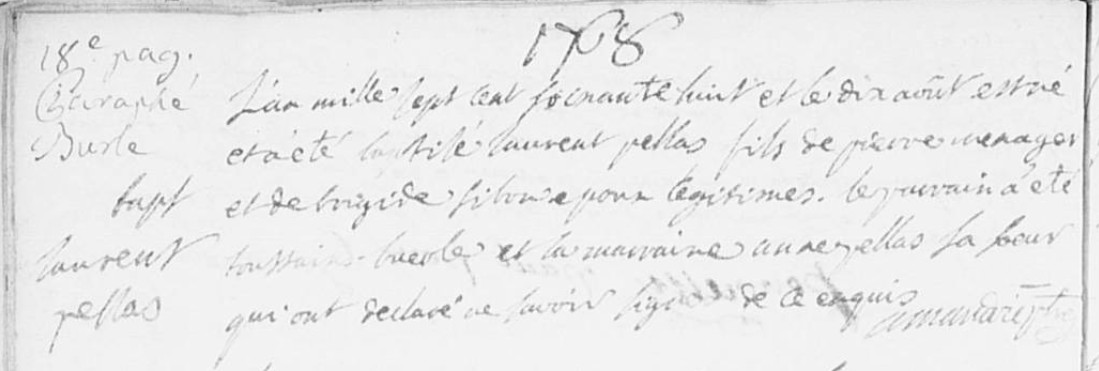 1768
18e pag.
Paraphé
Burle
bapt
laurent
pellas
L'an mille sept cent soixante huit et le dix août est né
et a été baptisé laurent pellas fils de pierre menager
et de brigide epoux legitimes. le parrain a été
toussaint et la marraine anne pellas sa soeur
qui ont declaré ne savoir signer de ce enquis
amandric ptre